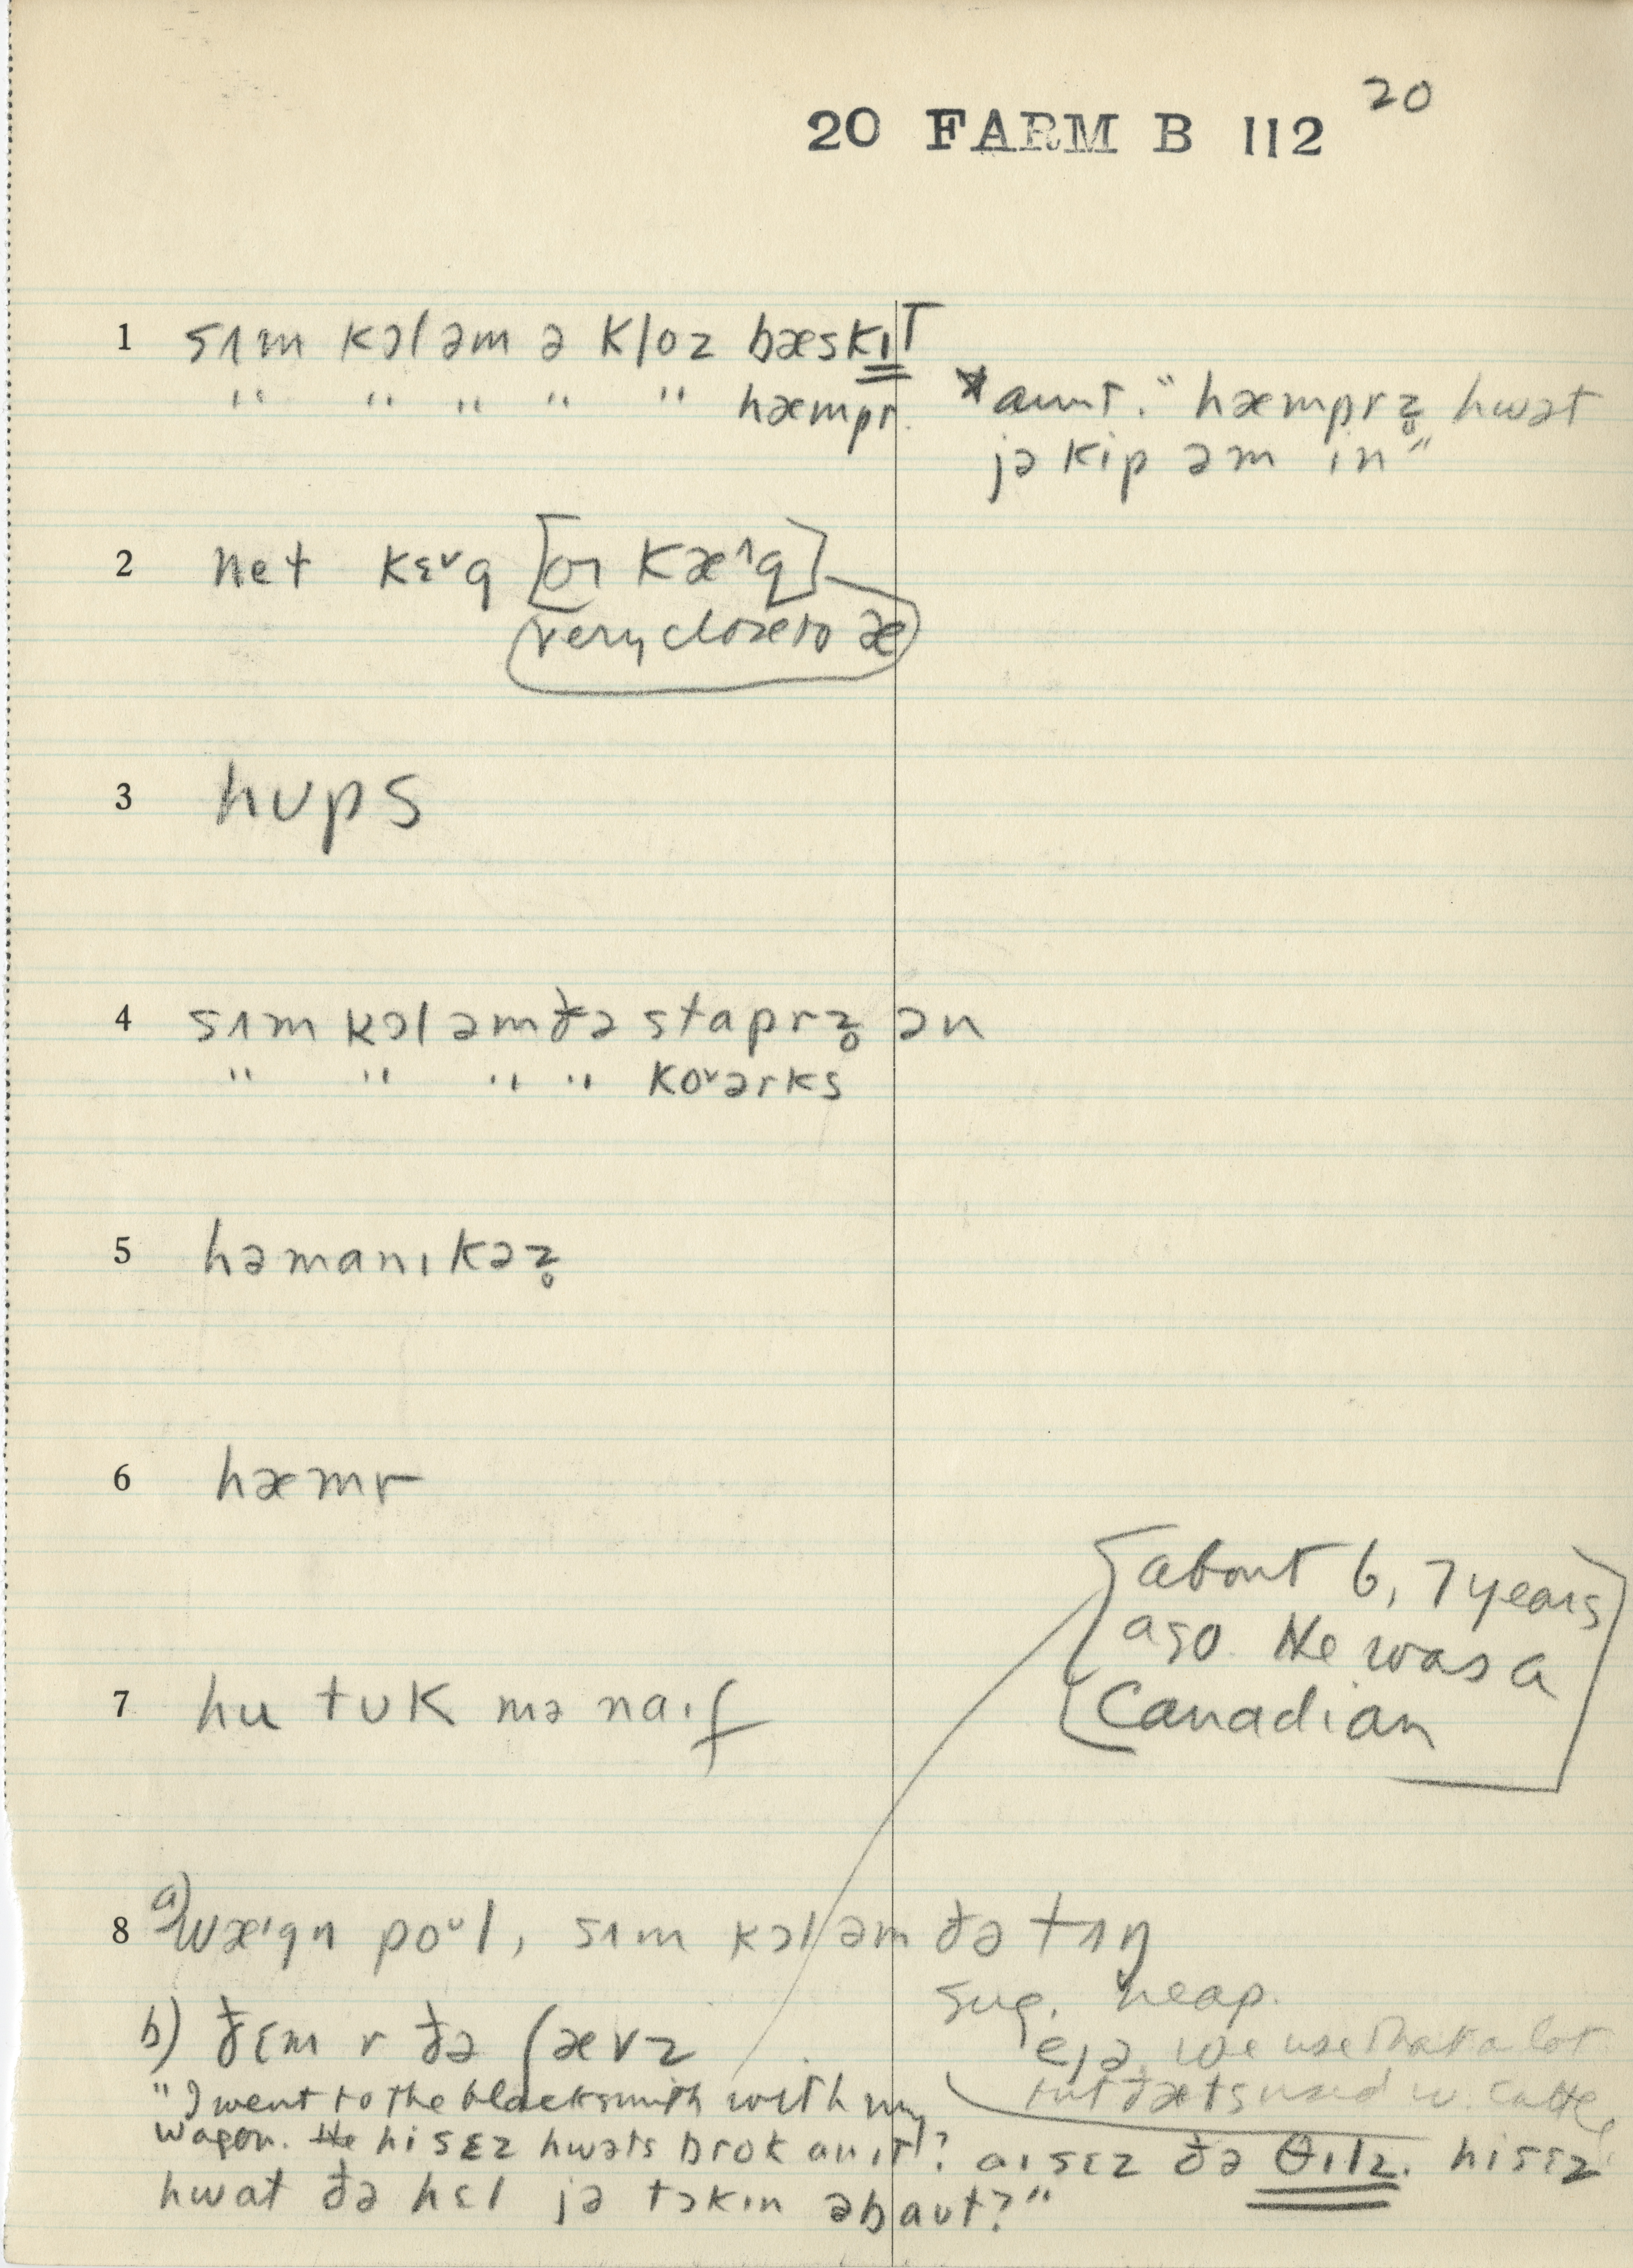 20
20 FARM B 112
1 sʌm kɔl əm ə kloz bæskɪT
" " " " " hæmpr. *aunt. "hæmprz̥ hwət
jə kip əm in"
2 net kɛˇg [or kæ^g]
very close to æ
3 hups
4 sʌm kɔl əm ðə staprz̥ ən
" " " " koˇərks
5 həmanɪkəz̥
6 hæmr
[about 6, 7 years
ago. He was a
Canadian]
7 hu tuk mə naɪf
8 a) wæˈgn poᵘl, sʌm kɔl əm ðə tʌŋ
sug. neap.
b) ðɛm r ðə ʃævz
ejə, we use that a lot
but ðæts used w. cattle
"I went to the blacksmith with my
wagon. He hi sɛz hwəts brok an ɪt? aɪ sɛz ðə θɪlz. hi sɛz
hwat ðə hɛl jə tɔkɪn əbaut?"